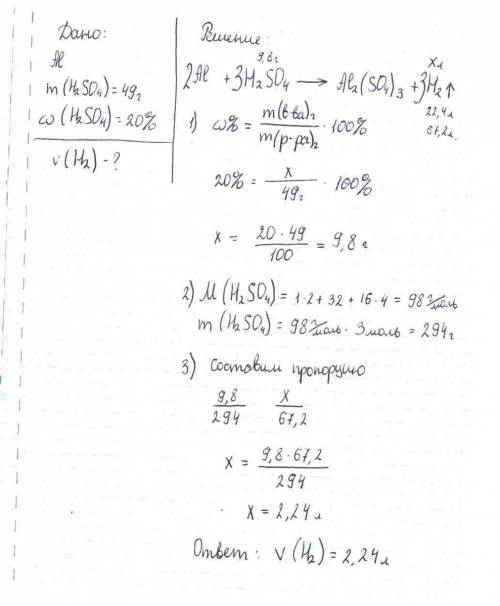 Дано:
Al
m(H₂SO₄)=49г
ω(H₂SO₄)=20%
v(H₂)-?
Решение:
9,8г хл
2Al + 3H₂SO₄ ⟶ Al₂(SO₄)₃ + 3H₂↑
22,4л
67,2л.
1) ω% = m(в-ва)г / m(р-ра)г · 100%
20% = x / 49г · 100%
x = 20 · 49 / 100 = 9,8 г
2) M(H₂SO₄) = 1·2 + 32 + 16·4 = 98 г/моль
m(H₂SO₄) = 98 г/моль · 3 моль = 294г
3) Составим пропорцию
9,8 / 294 x / 67,2
x = 9,8 · 67,2 / 294
x = 2,24 л
Ответ: v(H₂) = 2,24л